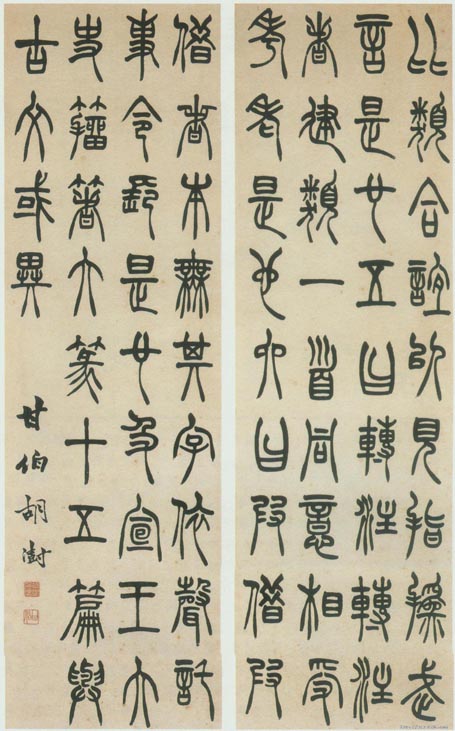 比類合誼㠯見指撝武
信是也五曰轉注轉注
者建類一首同意相受
考老是也六曰叚借叚
借者本無其字依聲託
事令長是也及宣王大
史籀著大篆十五篇與
古文或異
甘伯胡澍